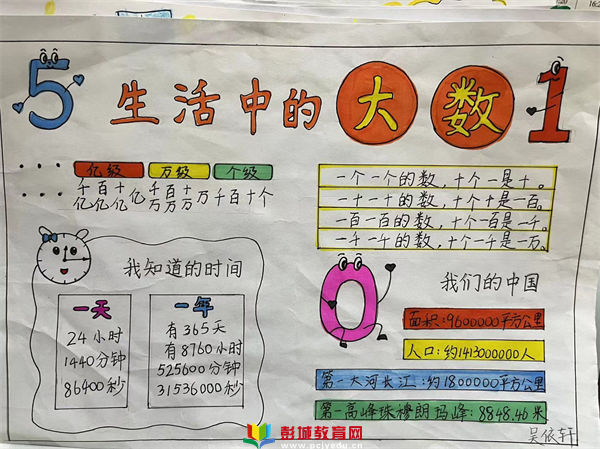 5 生活中的大数 1
亿级 万级 个级
千亿 百亿 十亿 亿 千万 百万 十万 万 千 百 十 个
一个一个的数，十个一是十。
一十一十的数，十个十是一百。
一百一百的数，十个一百是一千。
一千一千的数，十个一千是一万。
我知道的时间
一天
24小时
1440分钟
86400秒
一年
有365天
有8760小时
525600分钟
31536000秒
0
我们的中国
面积:9600000平方公里
人口:约1413000000人
第一大河长江:约1800000平方公里
第一高峰珠穆朗玛峰:8848.46米
吴依轩
彭城教育网
www.pcjyedu.cn